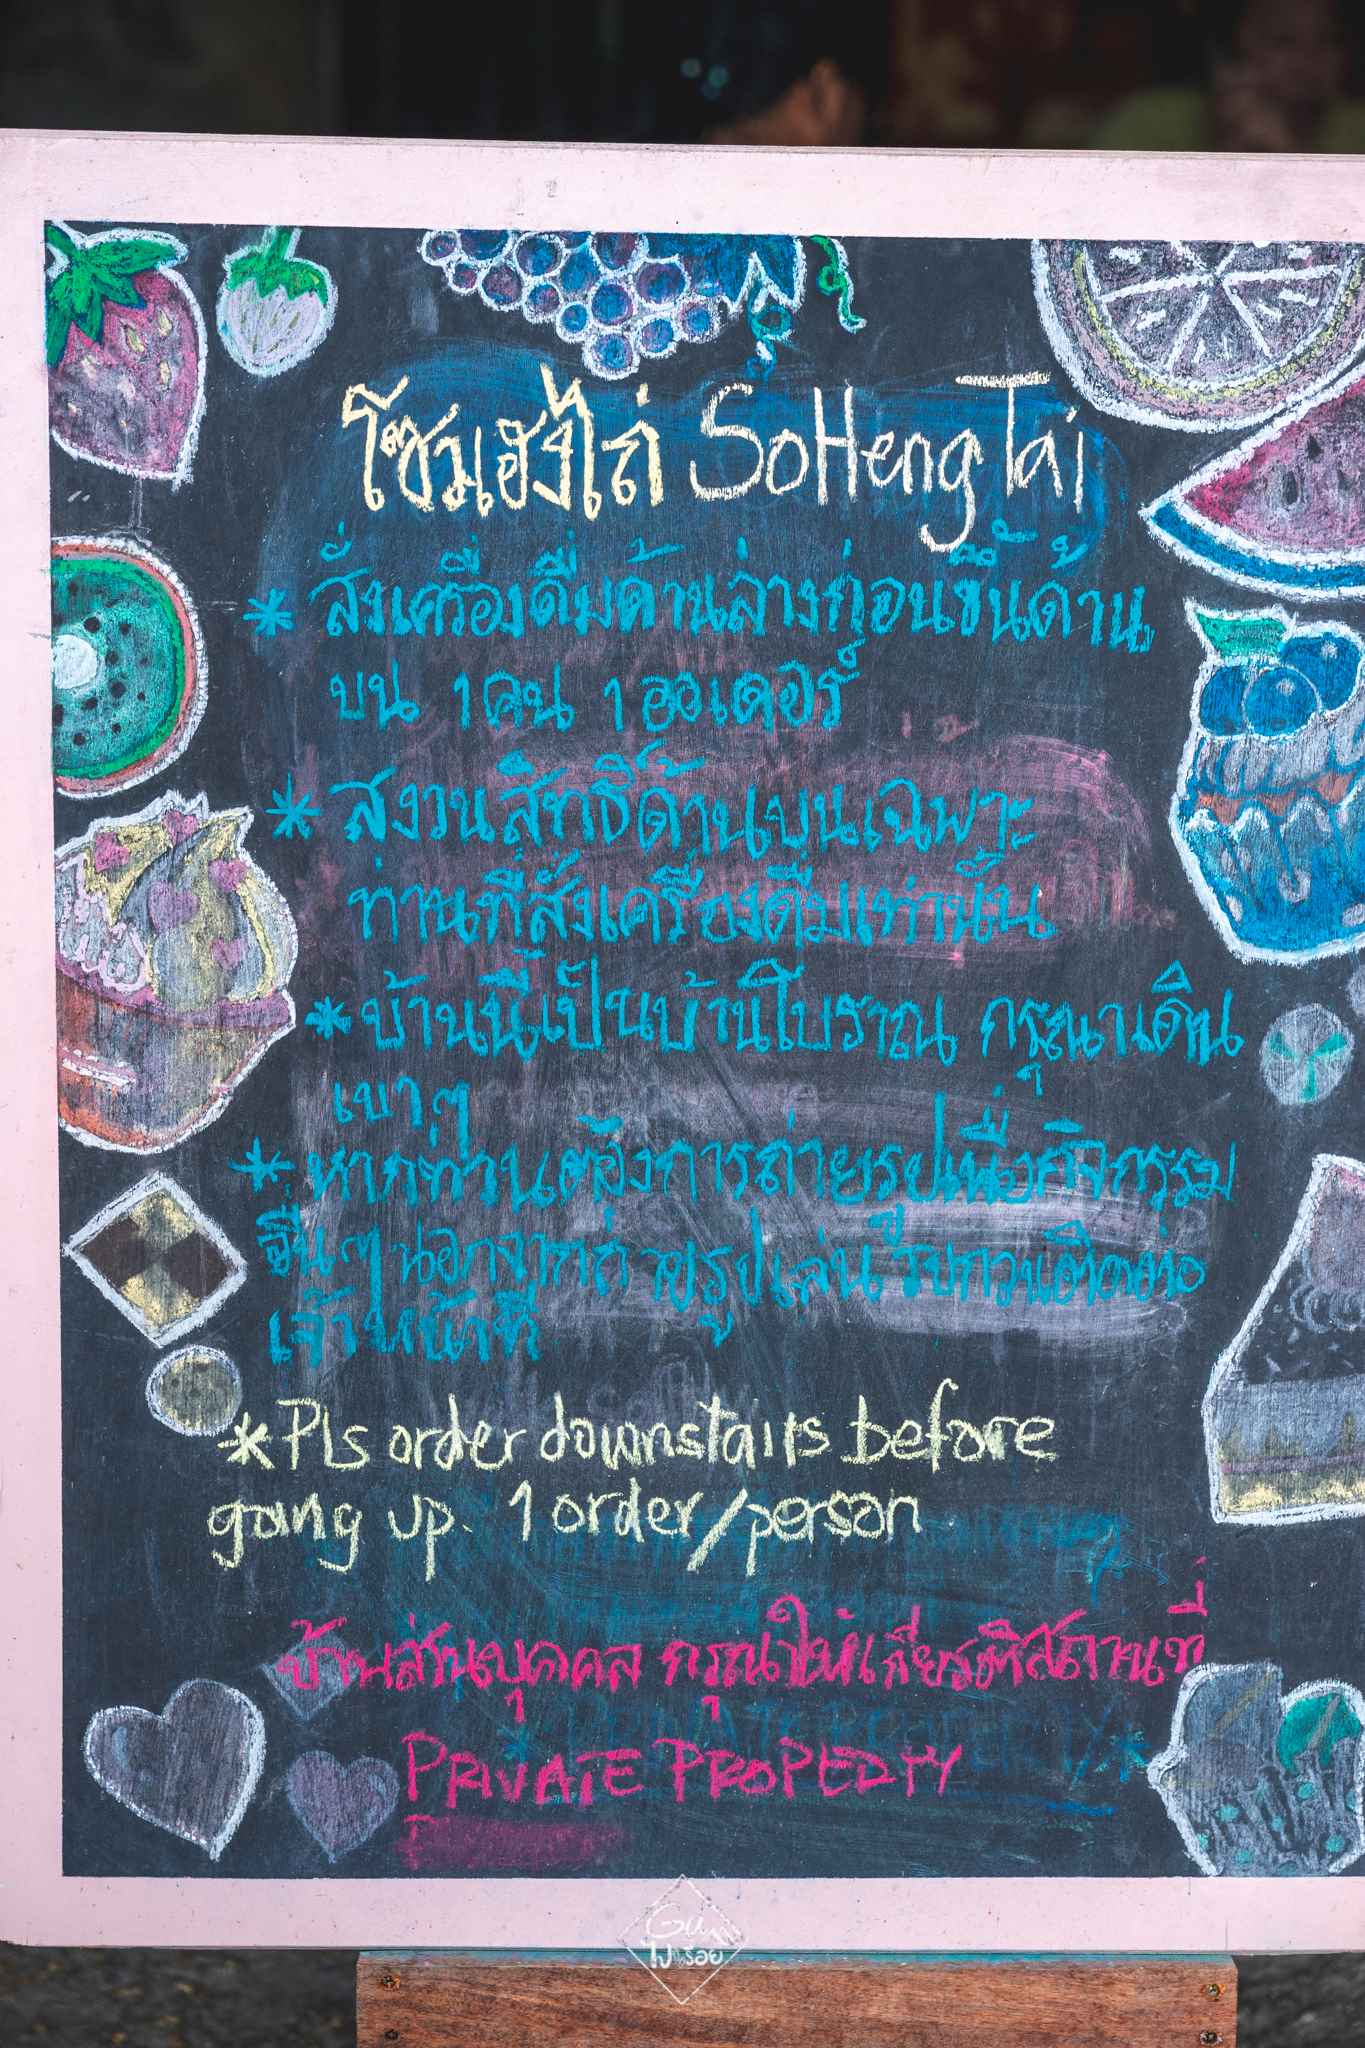 โซวเฮงไถ่ SoHengTai
* สั่งเครื่องดื่มด้านล่างก่อนขึ้นด้าน
บน 1 คน 1 ออเดอร์
* สงวนสิทธิ์ด้านบนเฉพาะ
ท่านที่สั่งเครื่องดื่มเท่านั้น
* บ้านนี้เป็นบ้านโบราณ กรุณาเดิน
เบาๆ
* หากท่านต้องการถ่ายรูปเพื่อกิจกรรม
อื่นๆ นอกจากถ่ายรูปเล่น รบกวนติดต่อ
เจ้าหน้าที่
* Pls order downstairs before
going up. 1 order/person
บ้านส่วนบุคคล กรุณาให้เกียรติสถานที่
PRIVATE PROPERTY
ไปเรื่อย